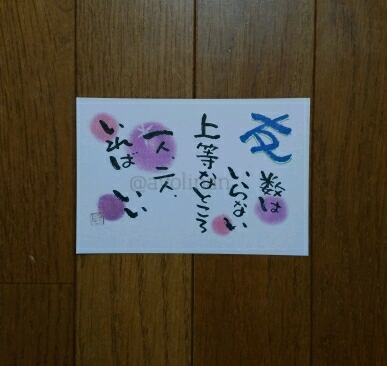 友
数は
いらない
上等なところ
一人、二人、
いれば いい